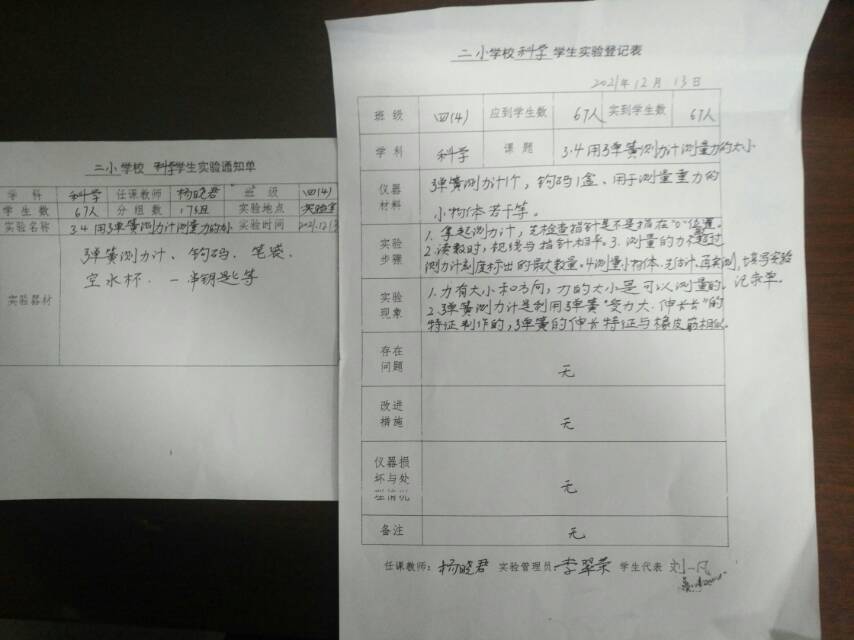 二小学校 科学 学生实验通知单
学科 科学 任课教师 杨晓君 班级 四(4)
学生数 67人 分组数 17组 实验地点 实验室
实验名称 3.4用弹簧测力计测量力的 实验时间 2021.12.13
实验器材
弹簧测力计、钩码、笔袋、
空水杯、一串钥匙等
二小学校 科学 学生实验登记表
2021年12月13日
班级 四(4) 应到学生数 67人 实到学生数 67人
学科 科学 课题 3.4用弹簧测力计测量力的大小
仪器材料
弹簧测力计1个,钩码1盒、用于测量重力的
小物体若干等。
实验步骤
1.拿起测力计,先检查指针是不是指在"0"位置。
2.读数时,视线与指针相平。3.测量的力不超过
测力计刻度标出的最大数量。4.测量小物体.先估计,再实测,填写实验
记录单。
实验现象
1.力有大小和方向,力的大小是可以测量的。
2.弹簧测力计是利用弹簧"受力大、伸长长"的
特征制作的,弹簧的伸长特征与橡皮筋相似。
存在问题 无
改进措施 无
仪器损坏与处理情况 无
备注 无
任课教师:杨晓君 实验管理员:李翠荣 学生代表 刘一凡